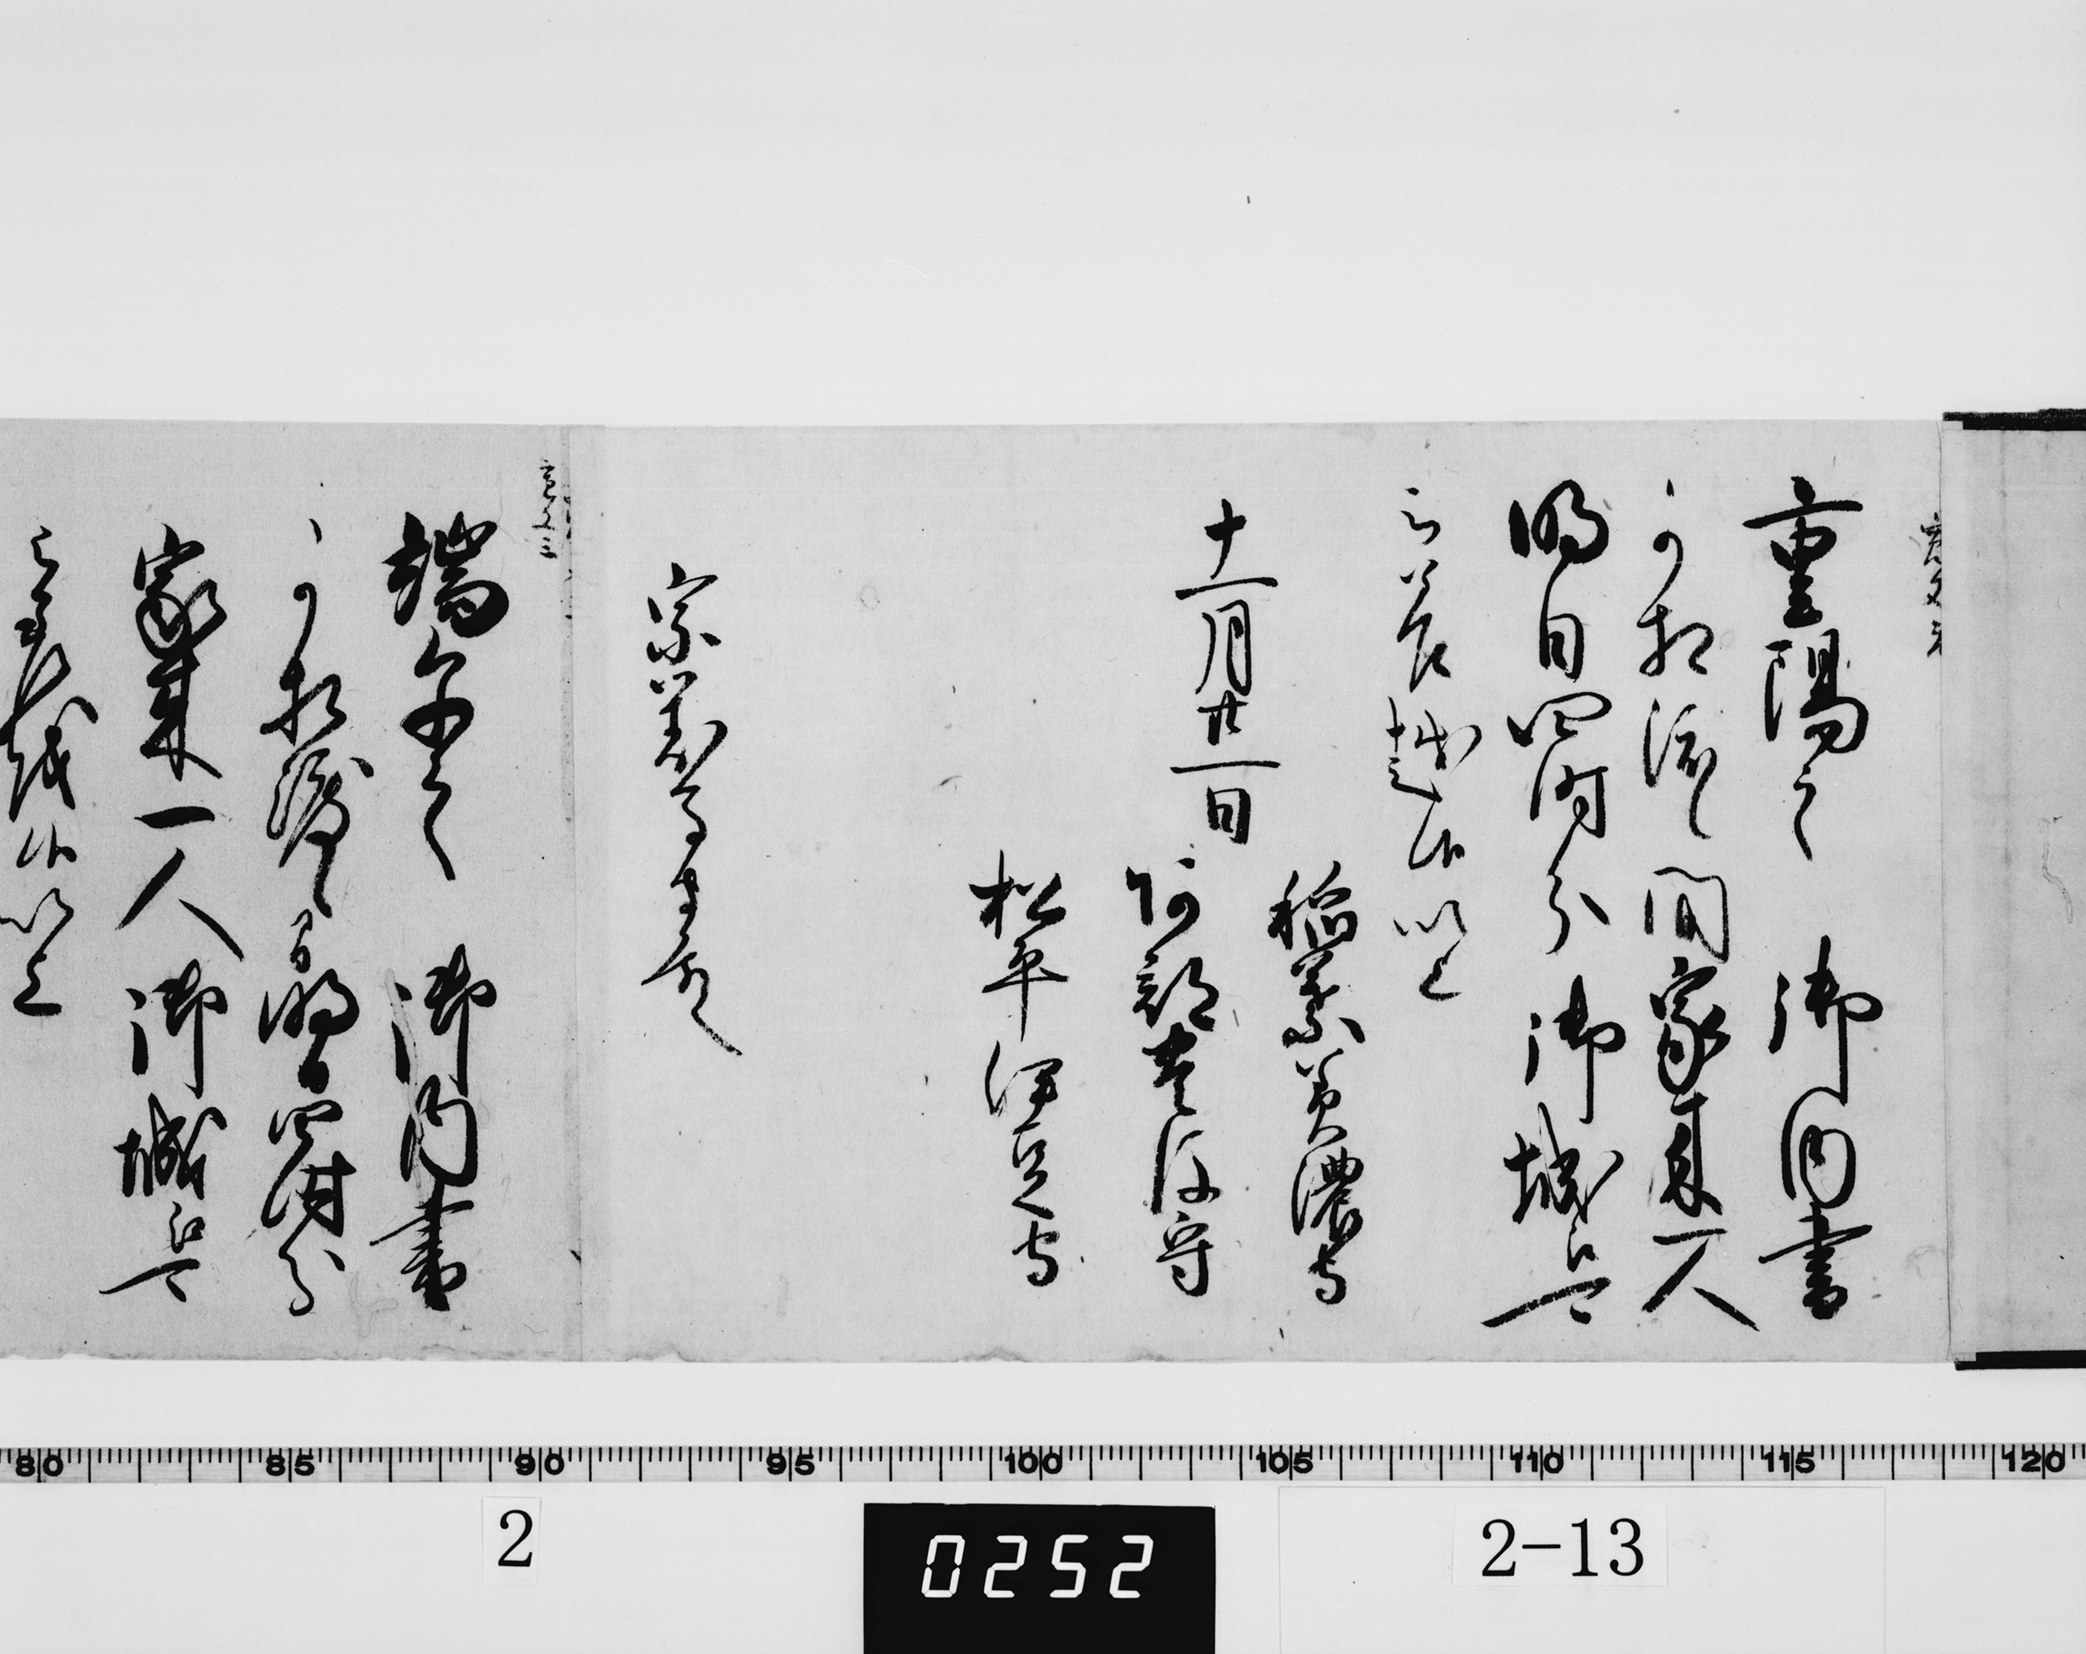 重陽之 御内書
可相渡之間家来一人
明日四時分 御城江
可差越候以上
稲葉美濃守
十一月廿一日
阿部豊後守
松平伊豆守
宗対馬守殿
端午之 御内書
可相渡之間明日四時分
家来一人 御城江
可差越候以上
80 85 90 95 100 105 110 115 120
2
0252
2-13